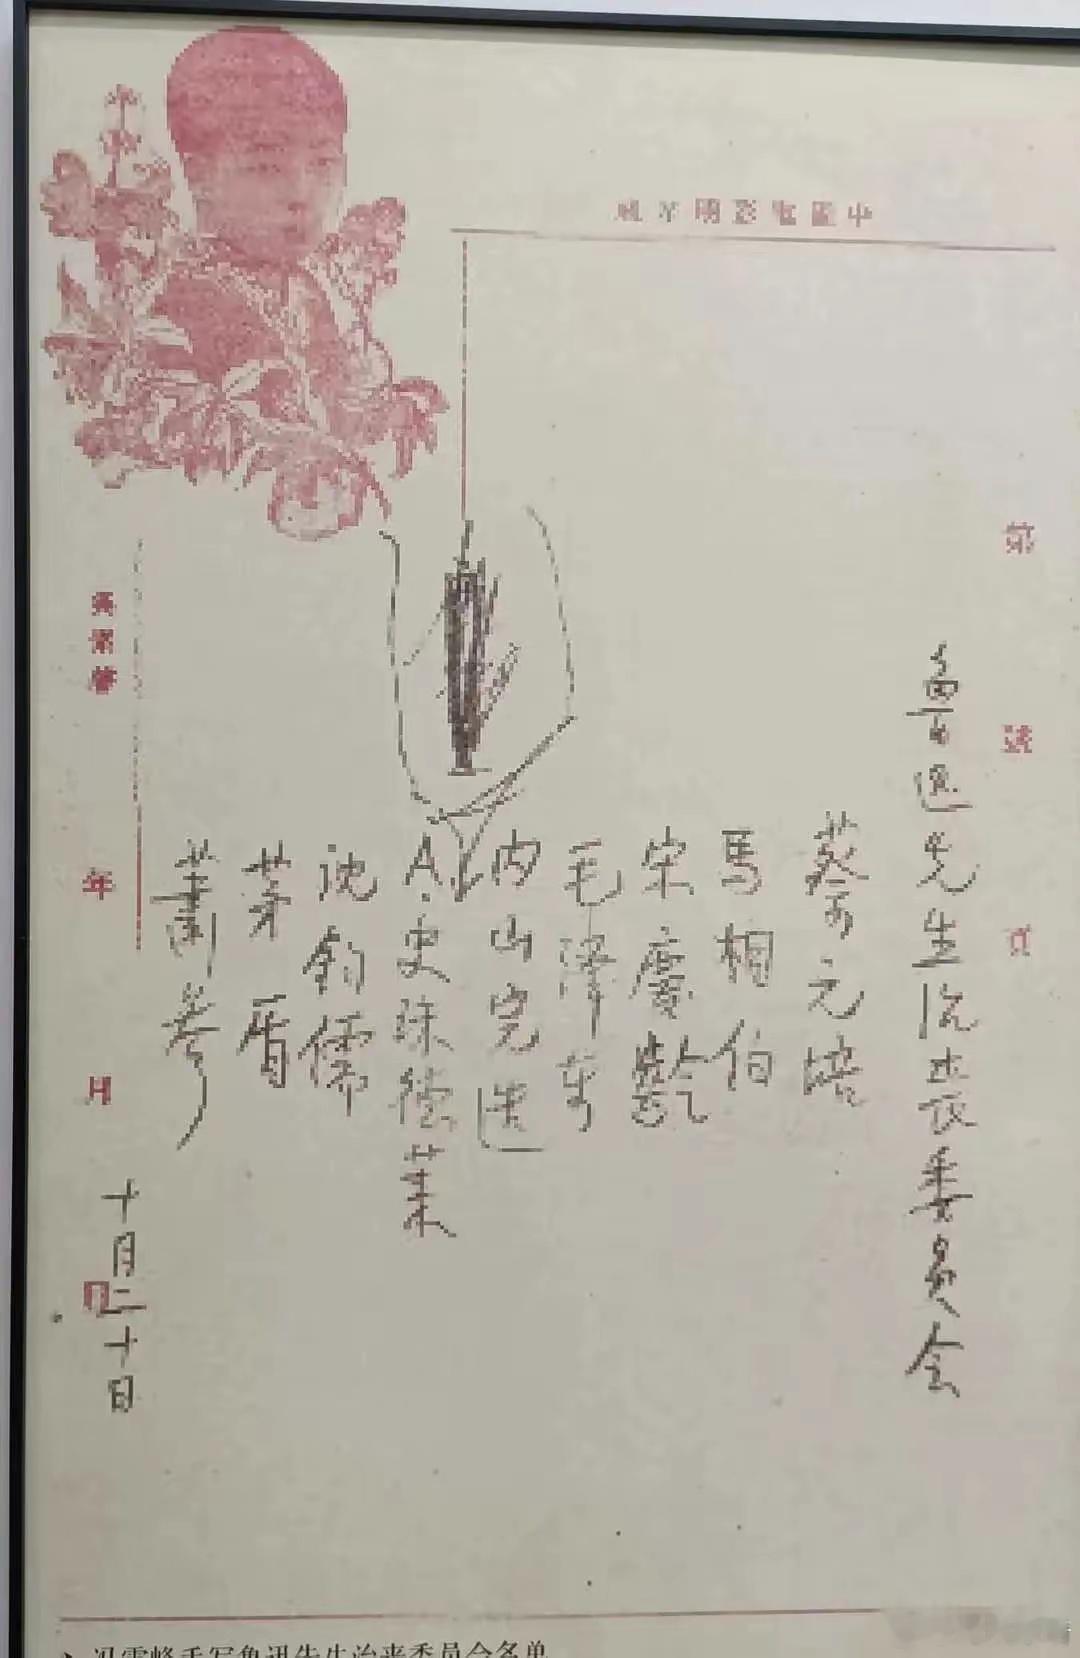 中國電影明星風
第 號 頁
魯迅先生治喪委員会
蔡元培
馬相伯
宋慶齡
毛澤東
内山完造
A.史沫德萊
沈鈞儒
茅盾
蕭參
年 月 日
十月二十日
冯雪峰手写鲁迅先生治丧委员会名单